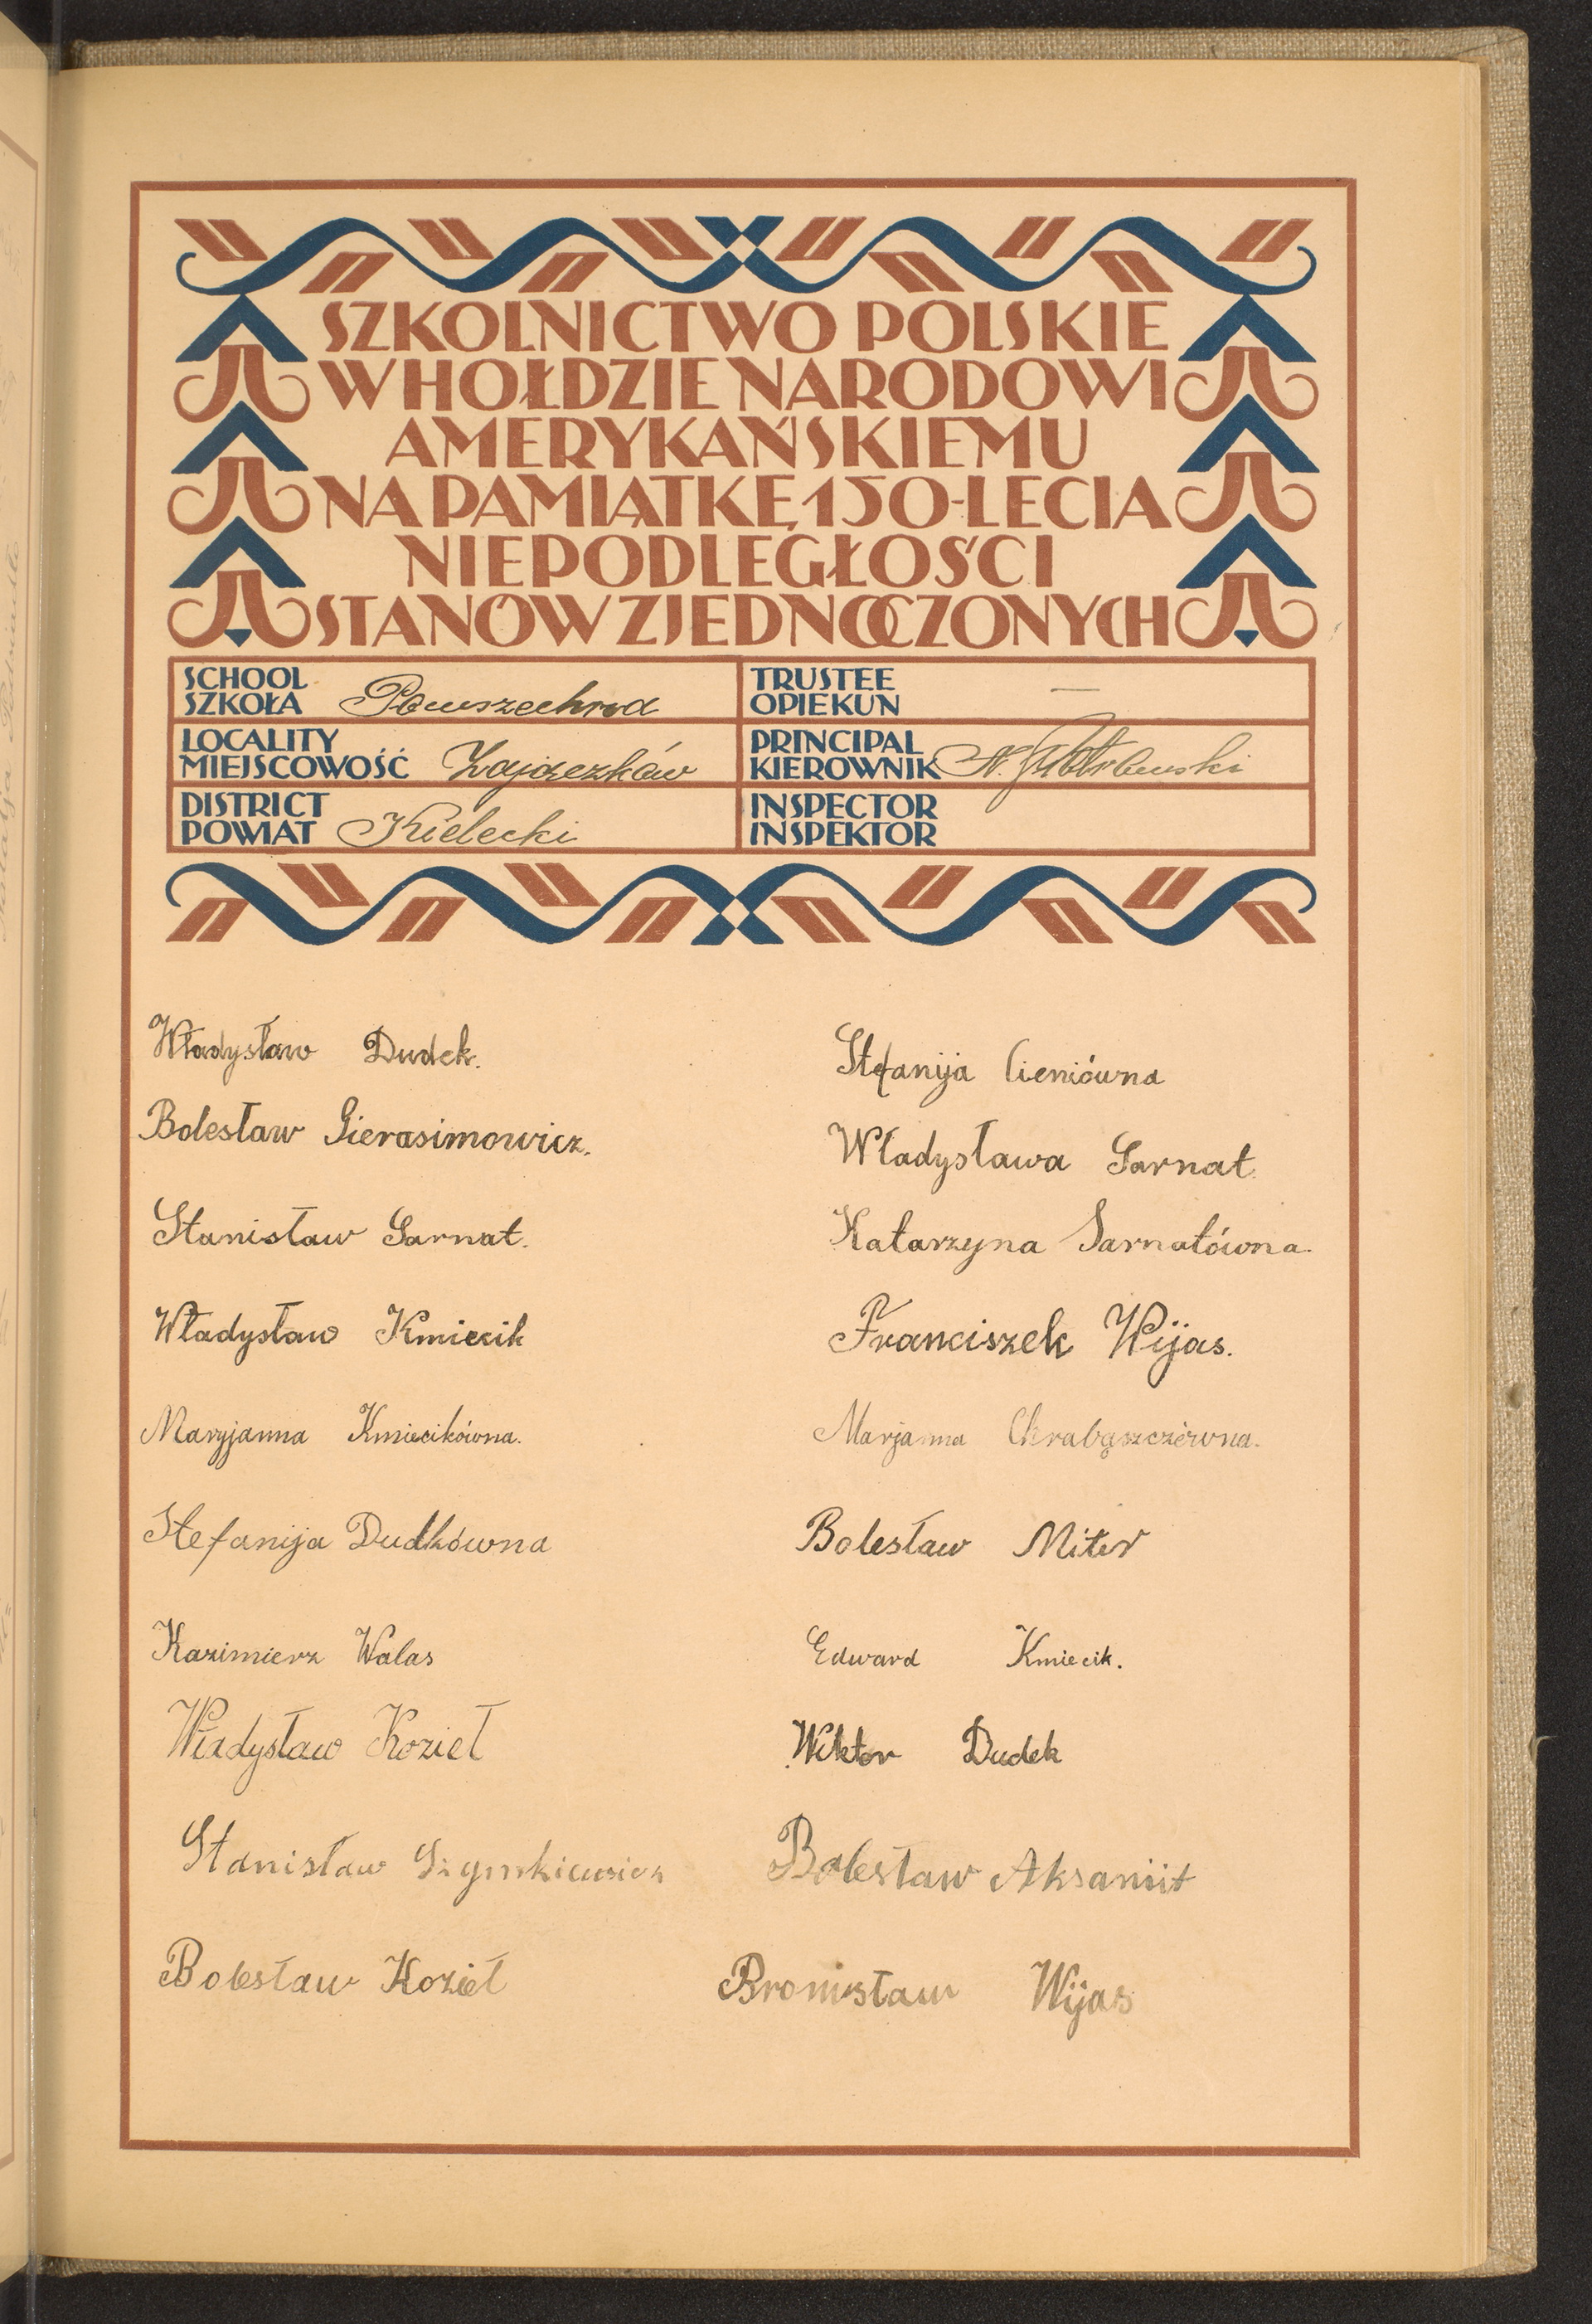 SZKOLNICTWO POLSKIE
W HOŁDZIE NARODOWI
AMERYKAŃSKIEMU
NA PAMIĄTKĘ 150-LECIA
NIEPODLEGŁOŚCI
STANÓW ZJEDNOCZONYCH
SCHOOL
SZKOŁA Powszechna
LOCALITY
MIEJSCOWOŚĆ Zajączków
DISTRICT
POWIAT Kielecki
TRUSTEE
OPIEKUN —
PRINCIPAL
KIEROWNIK
INSPECTOR
INSPEKTOR
Władysław Dudek.
Bolesław Gierasimowicz.
Stanisław Sarnat.
Władysław Kmiecik
Maryjanna Kmiecikówna.
Stefanija Dudkówna
Kazimierz Walas
Władysław Kozieł
Stanisław
Bolesław Kozieł
Stefanija Cieniówna
Władysława Sarnat
Katarzyna Sarnatówna.
Franciszek Wijas.
Marjanna Chrabąszczówna.
Bolesław Miter
Edward Kmiecik.
Wiktor Dudek
Bolesław Aksamit
Bronisław Wijas